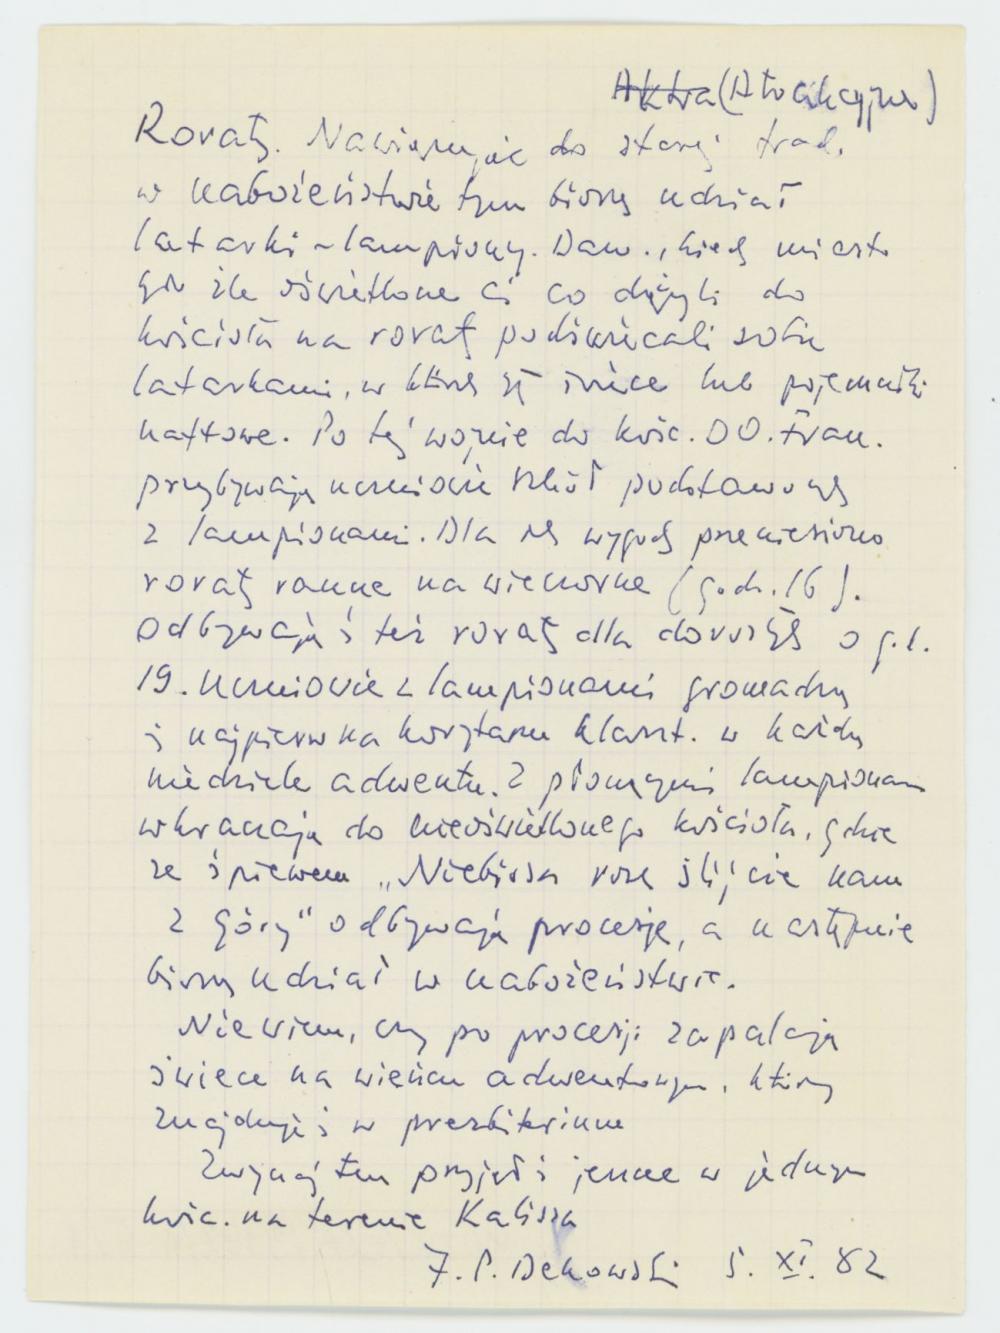 Aktra (Atrakcyjne)
Roraty. Nawiązując do starej trad.
w nabożeństwie tym biorą udział
latarki – lampiony. Daw., kiedy miasto
było źle oświetlone ci co dążyli do
kościoła na roraty podświecali sobie
latarkami, w których są świece lub pojemniki
naftowe. Po tej wojnie do kośc. OO. Fran.
przybywają uczniowie szkół podstawowych
z lampionami. Dla ich wygody przeniesiono
roraty ranne na wieczorne (godz. 16).
Odbywają się też roraty dla dorosłych o g.
19. Uczniowie z lampionami gromadzą
się najpierw na korytarzu klaszt. w każdą
niedzielę adwentu. Z płonącymi lampionami
wkraczają do nieoświetlonego kościoła, gdzie
ze śpiewem „Niebiosa rosę ślijcie nam
z góry" odbywają procesję, a następnie
biorą udział w nabożeństwie.
Nie wiem, czy po procesji zapalają
świece na wieńcu adwentowym, który
znajduje się w prezbiterium
Zwyczaj ten przyjął się jeszcze w jednym
kośc. na terenie Kalisza
J. P. Dekowski 5. XI. 82